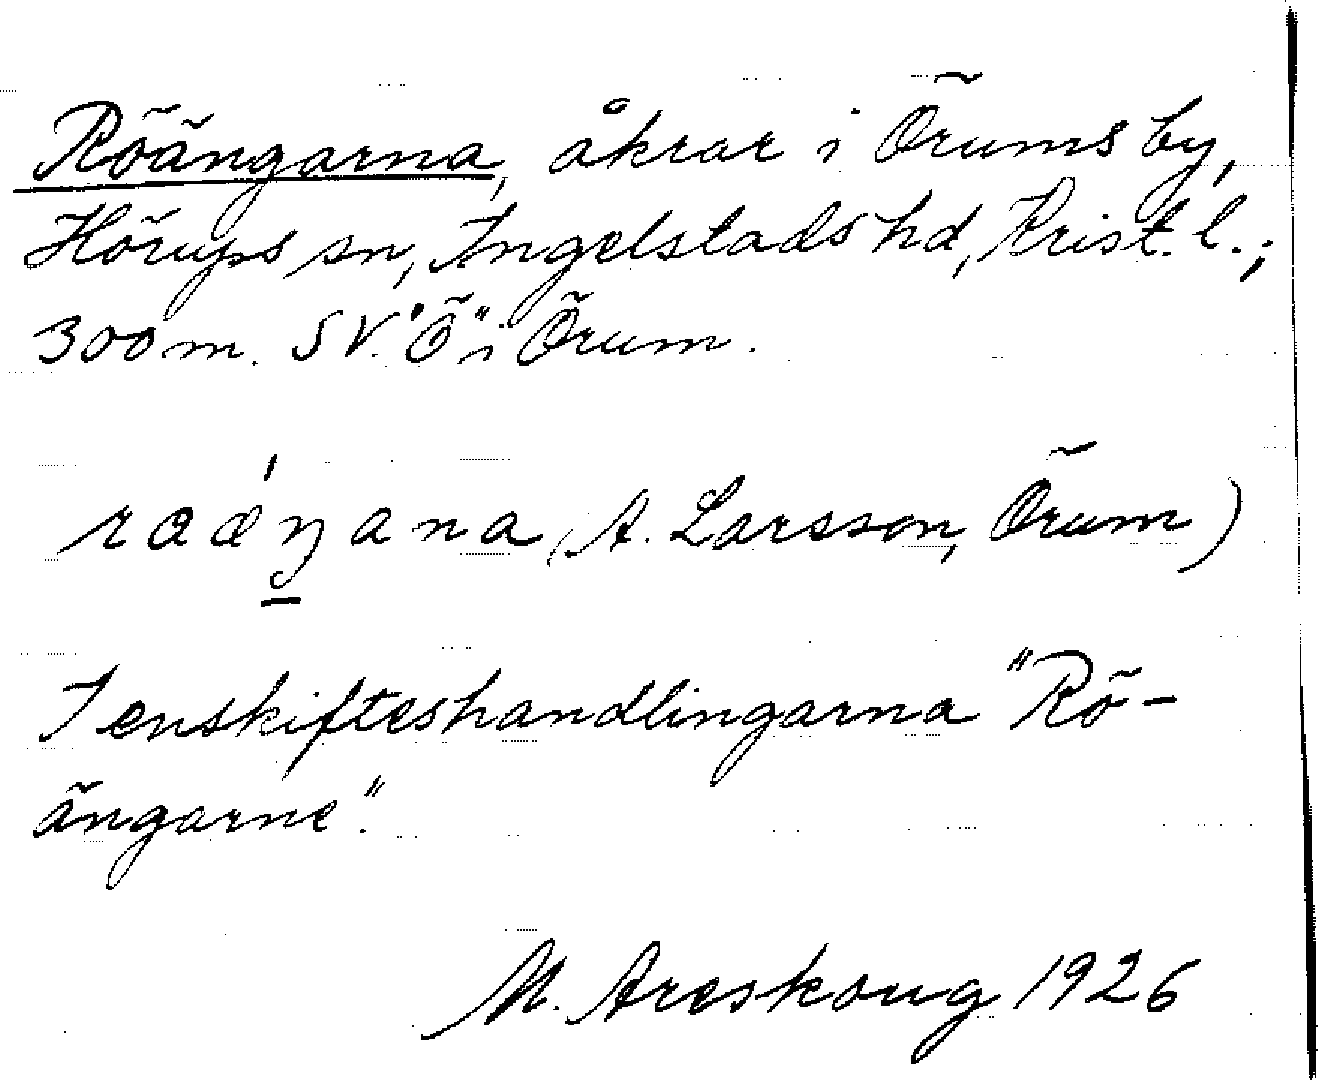 Röängarna, åkrar i Örums by,
Hörups sn, Ingelstads hd, Krist. l.;
300 m. SV. "Ö" i Örum.
raæŋana (A. Larsson, Örum)
I enskifteshandlingarna "Rö-
ängarne".
M. Areskoug 1926